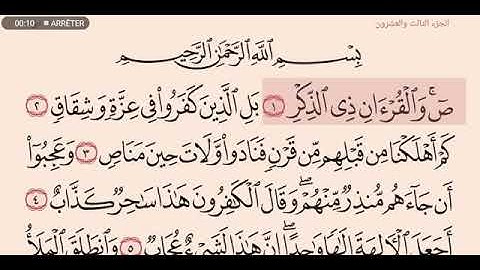 00:10 ■ ARRÊTER
الجزء الثالث والعشرون
بِسْمِ اللَّهِ الرَّحْمَٰنِ الرَّحِيمِ
صٓ ۚ وَالْقُرْءَانِ ذِي الذِّكْرِ ١ بَلِ الَّذِينَ كَفَرُوا فِي عِزَّةٍ وَشِقَاقٍ ٢
كَمْ أَهْلَكْنَا مِن قَبْلِهِم مِّن قَرْنٍ فَنَادَوا وَّلَاتَ حِينَ مَنَاصٍ ٣ وَعَجِبُوٓا
أَن جَآءَهُم مُّنذِرٌ مِّنْهُمْ ۖ وَقَالَ الْكَٰفِرُونَ هَٰذَا سَٰحِرٌ كَذَّابٌ ٤
أَجَعَلَ الْءَالِهَةَ إِلَٰهًا وَٰحِدًا ۖ إِنَّ هَٰذَا لَشَىْءٌ عُجَابٌ ٥ وَانطَلَقَ الْمَلَأُ